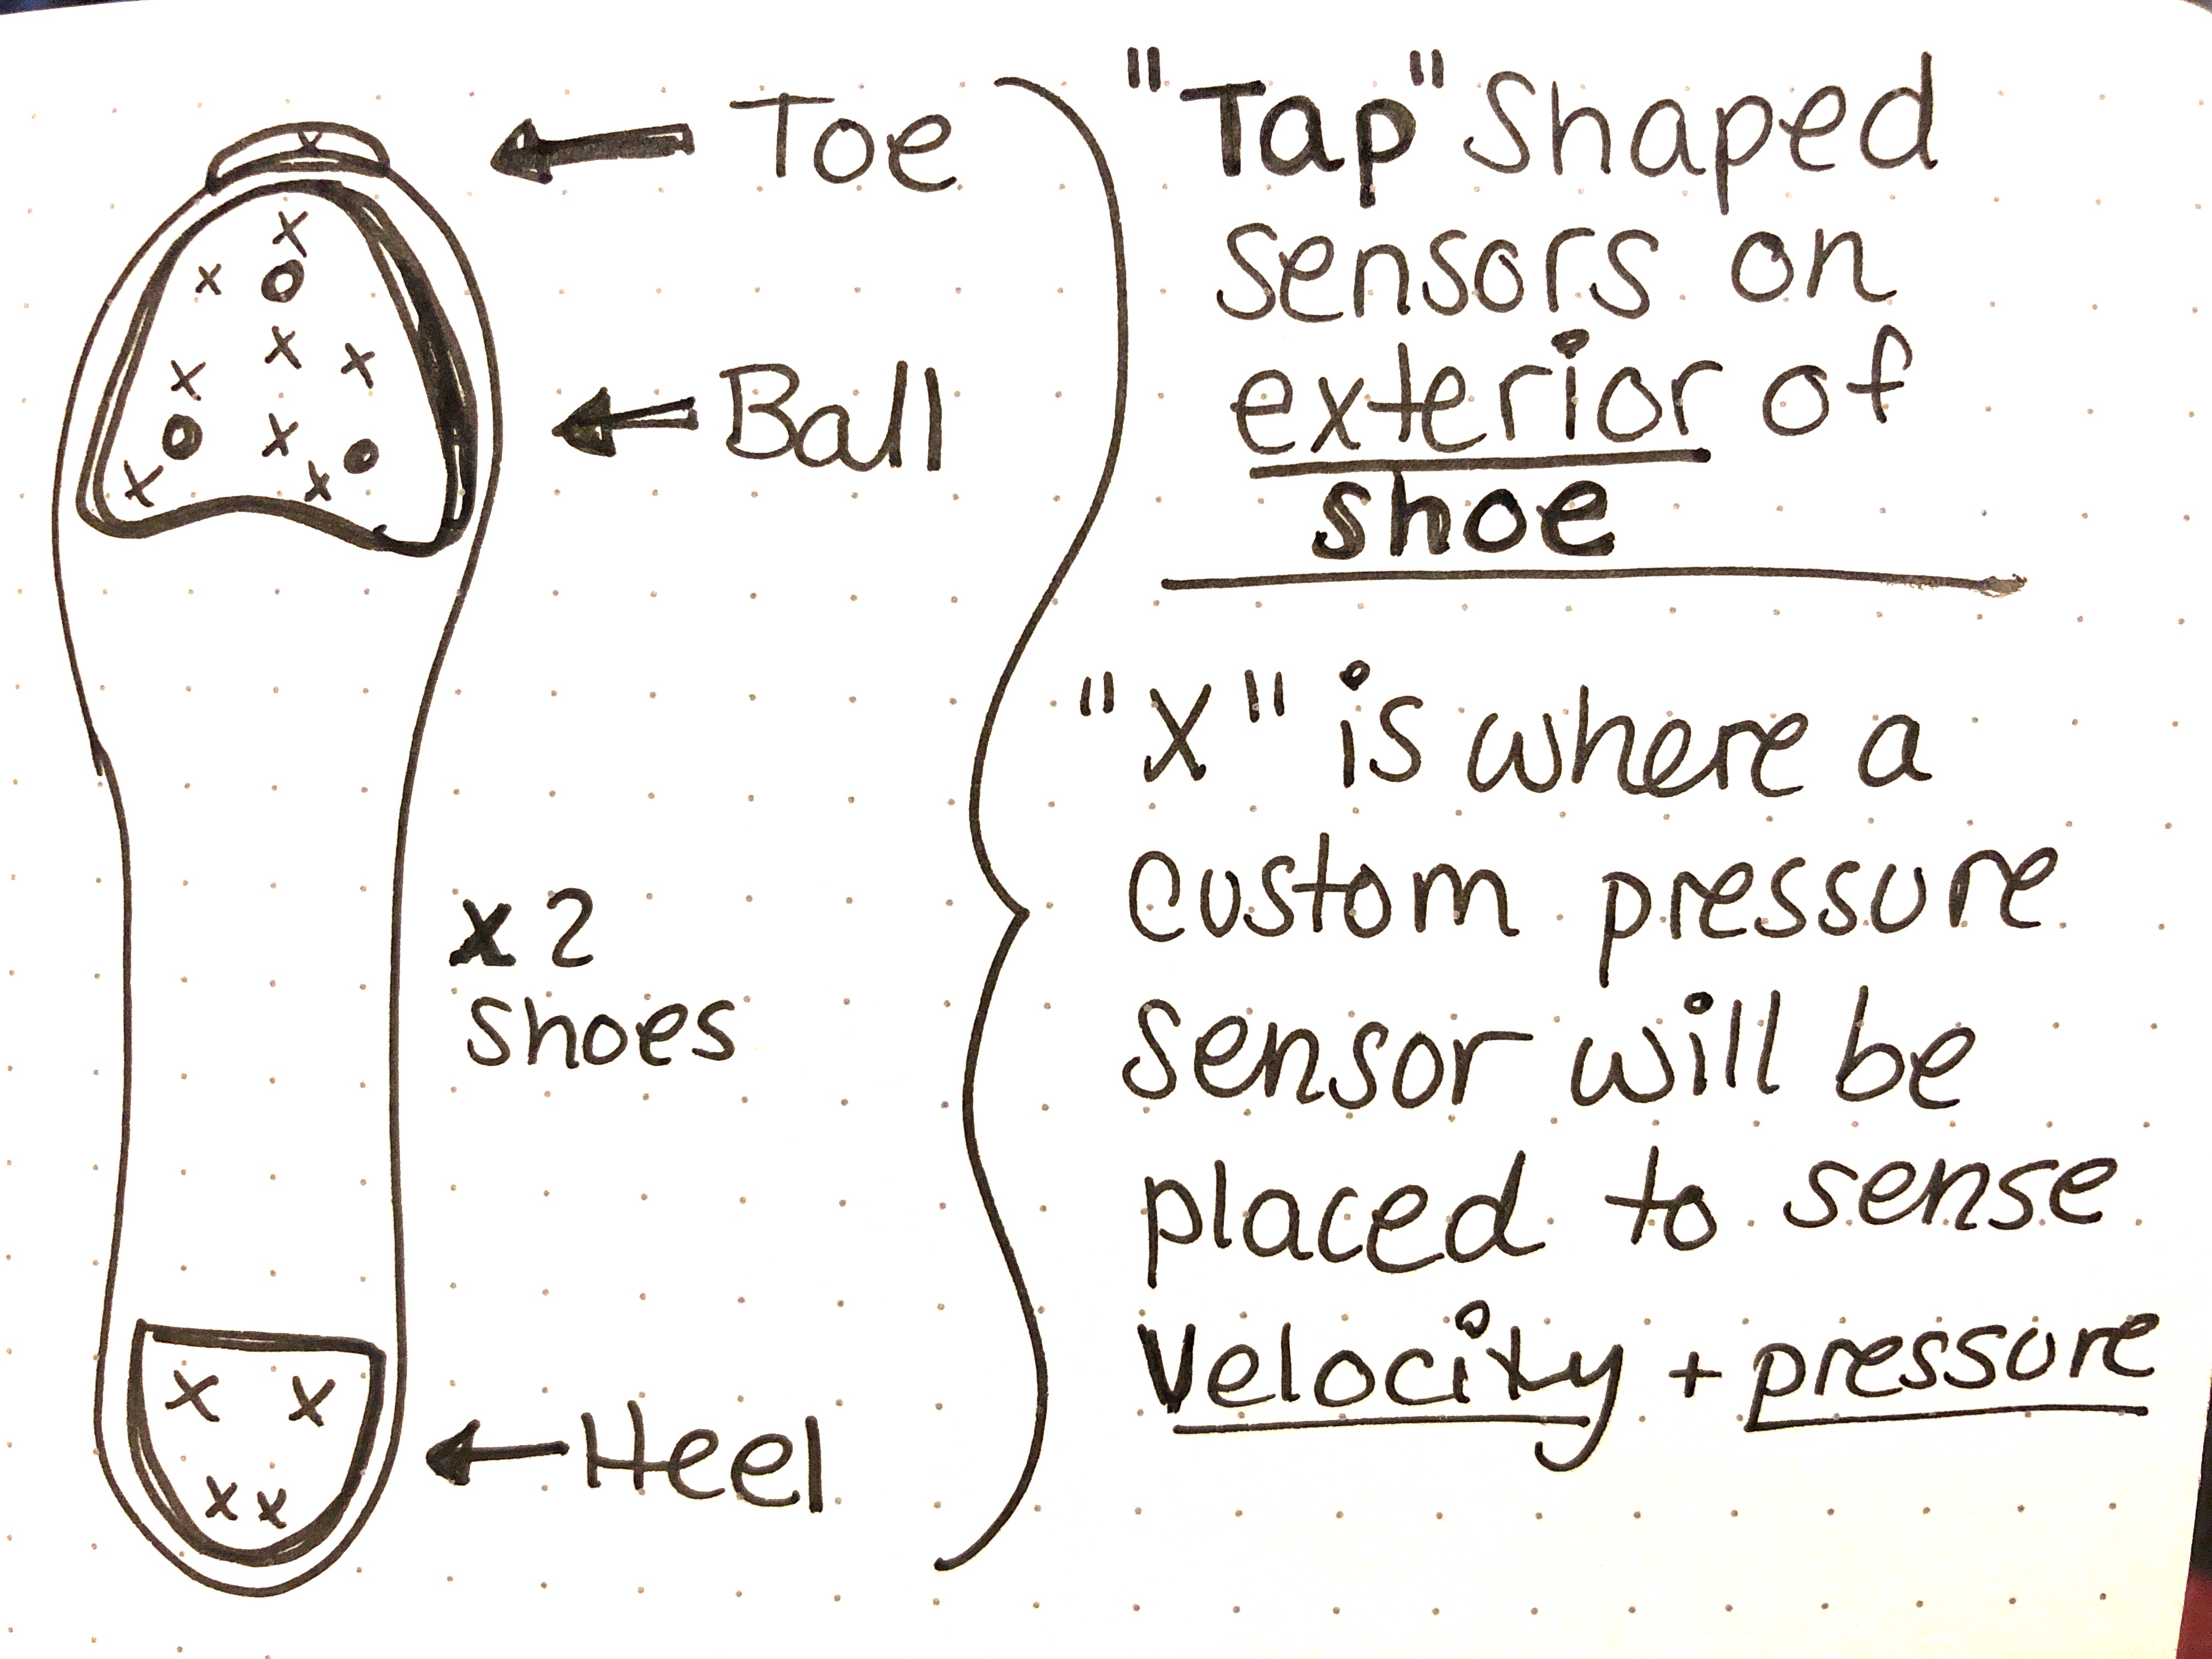 Toe
Ball
x2
shoes
Heel
"Tap" Shaped
sensors on
exterior of
shoe
"X" is where a
custom pressure
sensor will be
placed to sense
Velocity + pressure